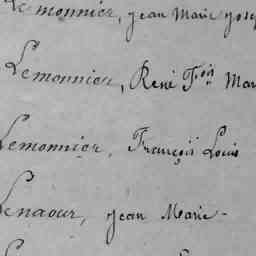 Lemonnier, Jean Marie Josep
Lemonnier, René Fois Mar
Lemonnier, François Louis
Lenaour, Jean Marie -